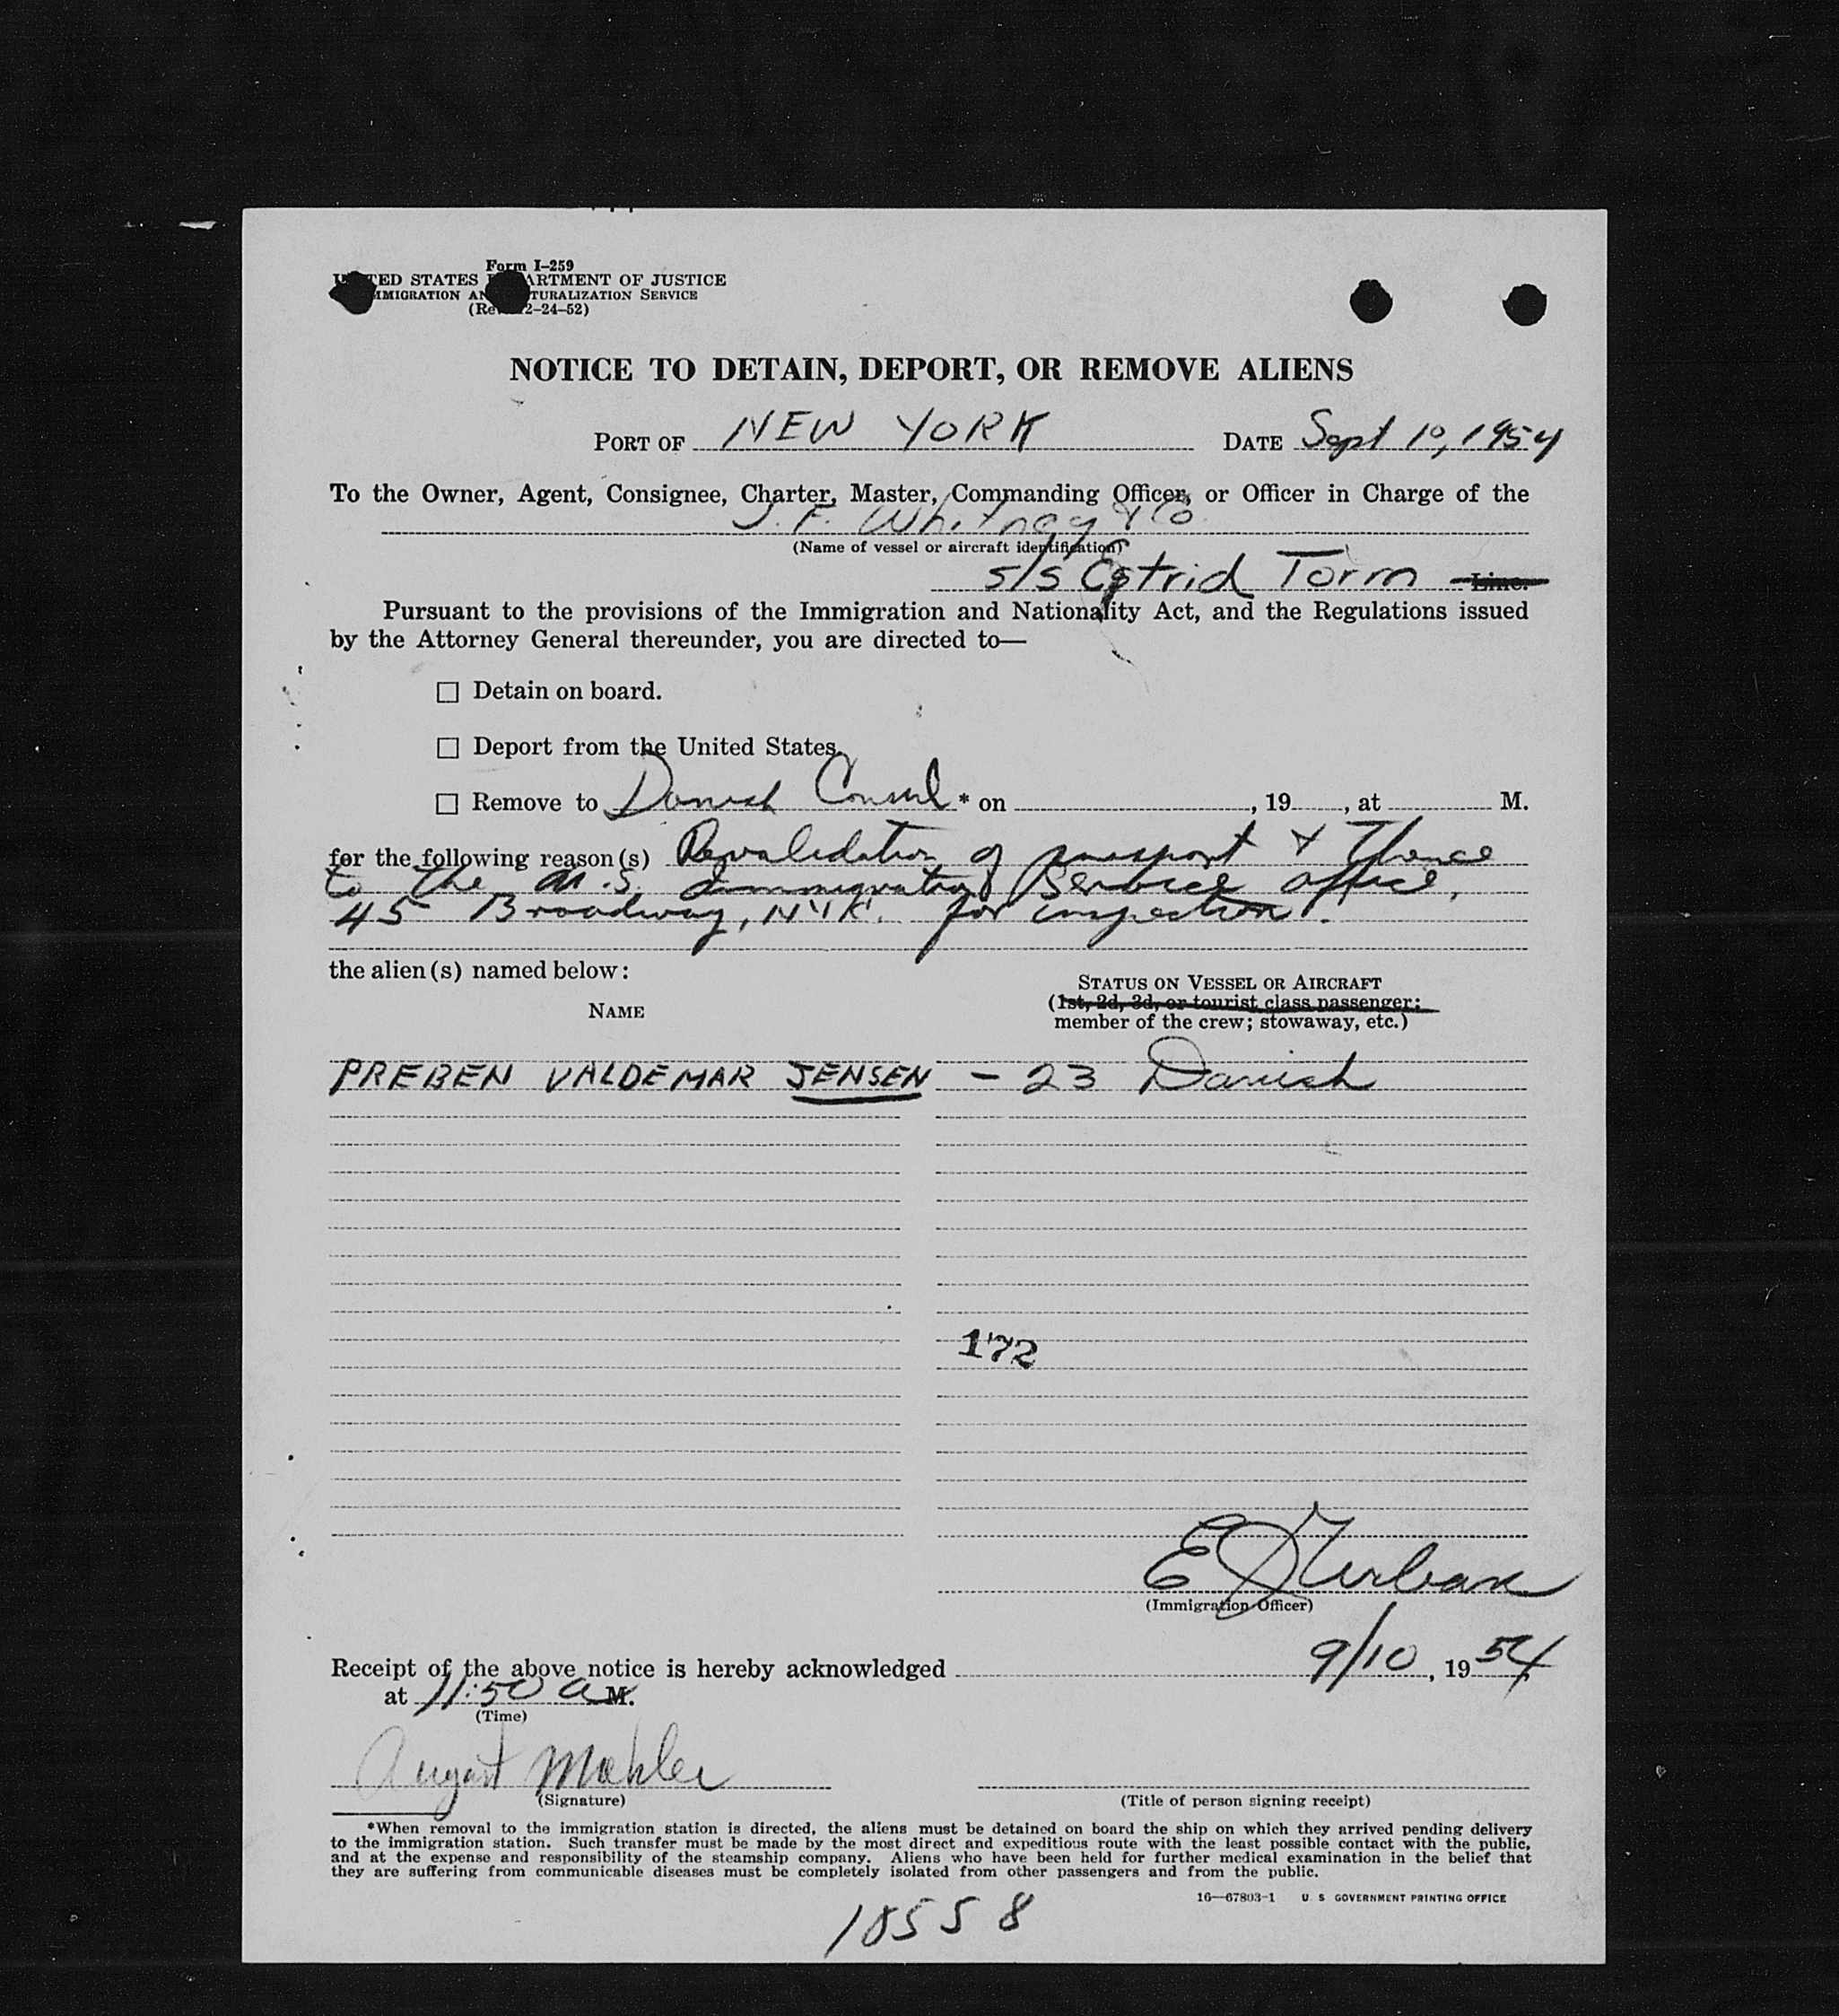 Form I-259
UNITED STATES DEPARTMENT OF JUSTICE
IMMIGRATION AND NATURALIZATION SERVICE
(Rev. 12-24-52)
NOTICE TO DETAIN, DEPORT, OR REMOVE ALIENS
PORT OF NEW YORK DATE Sept 10, 1954
To the Owner, Agent, Consignee, Charter, Master, Commanding Officer, or Officer in Charge of the
J. F. Whitney & Co
(Name of vessel or aircraft identification)
S/S Estrid Torm Line.
Pursuant to the provisions of the Immigration and Nationality Act, and the Regulations issued
by the Attorney General thereunder, you are directed to—
☐ Detain on board.
☐ Deport from the United States.
☐ Remove to Danish Consul * on , 19 , at M.
for the following reason(s) Revalidation of passport & Thence
to the U.S. Immigration Service office,
45 Broadway, NYK. for inspection.
the alien(s) named below:
NAME
STATUS ON VESSEL OR AIRCRAFT
(1st, 2d, 3d, or tourist class passenger;
member of the crew; stowaway, etc.)
PREBEN VALDEMAR JENSEN - 23 Danish
172
E
(Immigration Officer)
Receipt of the above notice is hereby acknowledged 9/10, 1954
at 11:50 a M.
(Time)
August Mahler
(Signature)
(Title of person signing receipt)
*When removal to the immigration station is directed, the aliens must be detained on board the ship on which they arrived pending delivery
to the immigration station. Such transfer must be made by the most direct and expeditious route with the least possible contact with the public,
and at the expense and responsibility of the steamship company. Aliens who have been held for further medical examination in the belief that
they are suffering from communicable diseases must be completely isolated from other passengers and from the public.
16—67803-1 U. S GOVERNMENT PRINTING OFFICE
10558